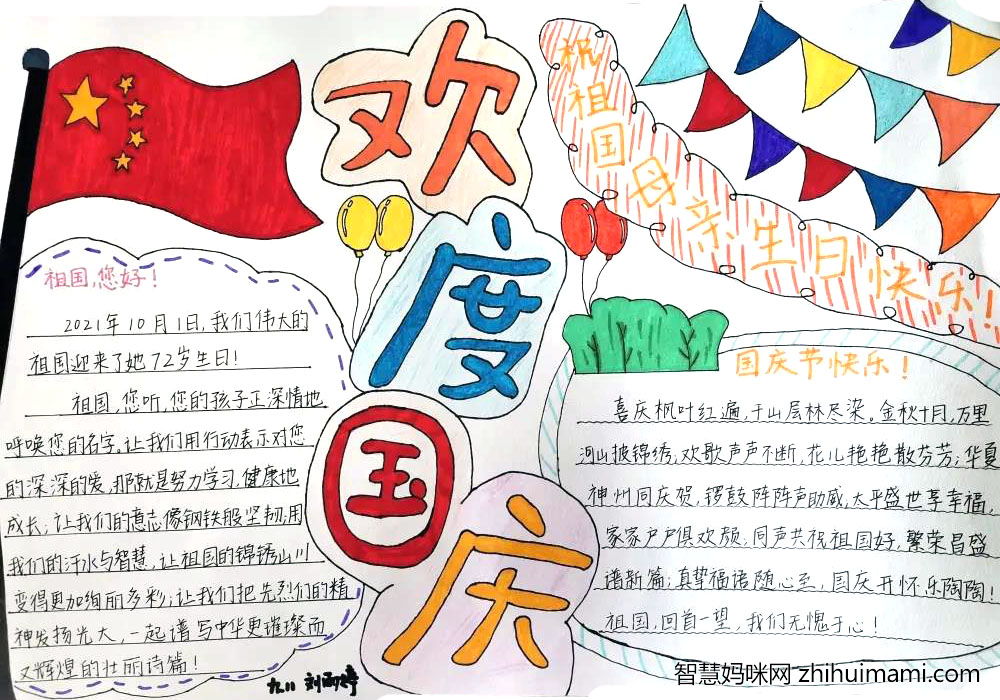 欢度国庆
祝祖国母亲生日快乐!
祖国,您好!
2021年10月1日,我们伟大的
祖国迎来了她72岁生日!
祖国,您听,您的孩子正深情地
呼唤您的名字。让我们用行动表示对您
的深深的爱,那就是努力学习,健康地
成长;让我们的意志像钢铁般坚韧;用
我们的汗水与智慧,让祖国的锦锈山川
变得更加绚丽多彩;让我们把先烈们的精
神发扬光大,一起谱写中华更璀璨而
又辉煌的壮丽诗篇!
九.11 刘雨婷
国庆节快乐!
喜庆枫叶红遍,千山层林尽染。金秋十月,万里
河山披锦绣;欢歌声声不断,花儿艳艳散芬芳;华夏
神州同庆贺,锣鼓阵阵声助威,太平盛世享幸福,
家家户户俱欢颜;同声共祝祖国好,繁荣昌盛
谱新篇;真挚福语随心至,国庆开怀乐陶陶!
祖国,回首一望,我们无愧于心!
智慧妈咪网 zhihuimami.com